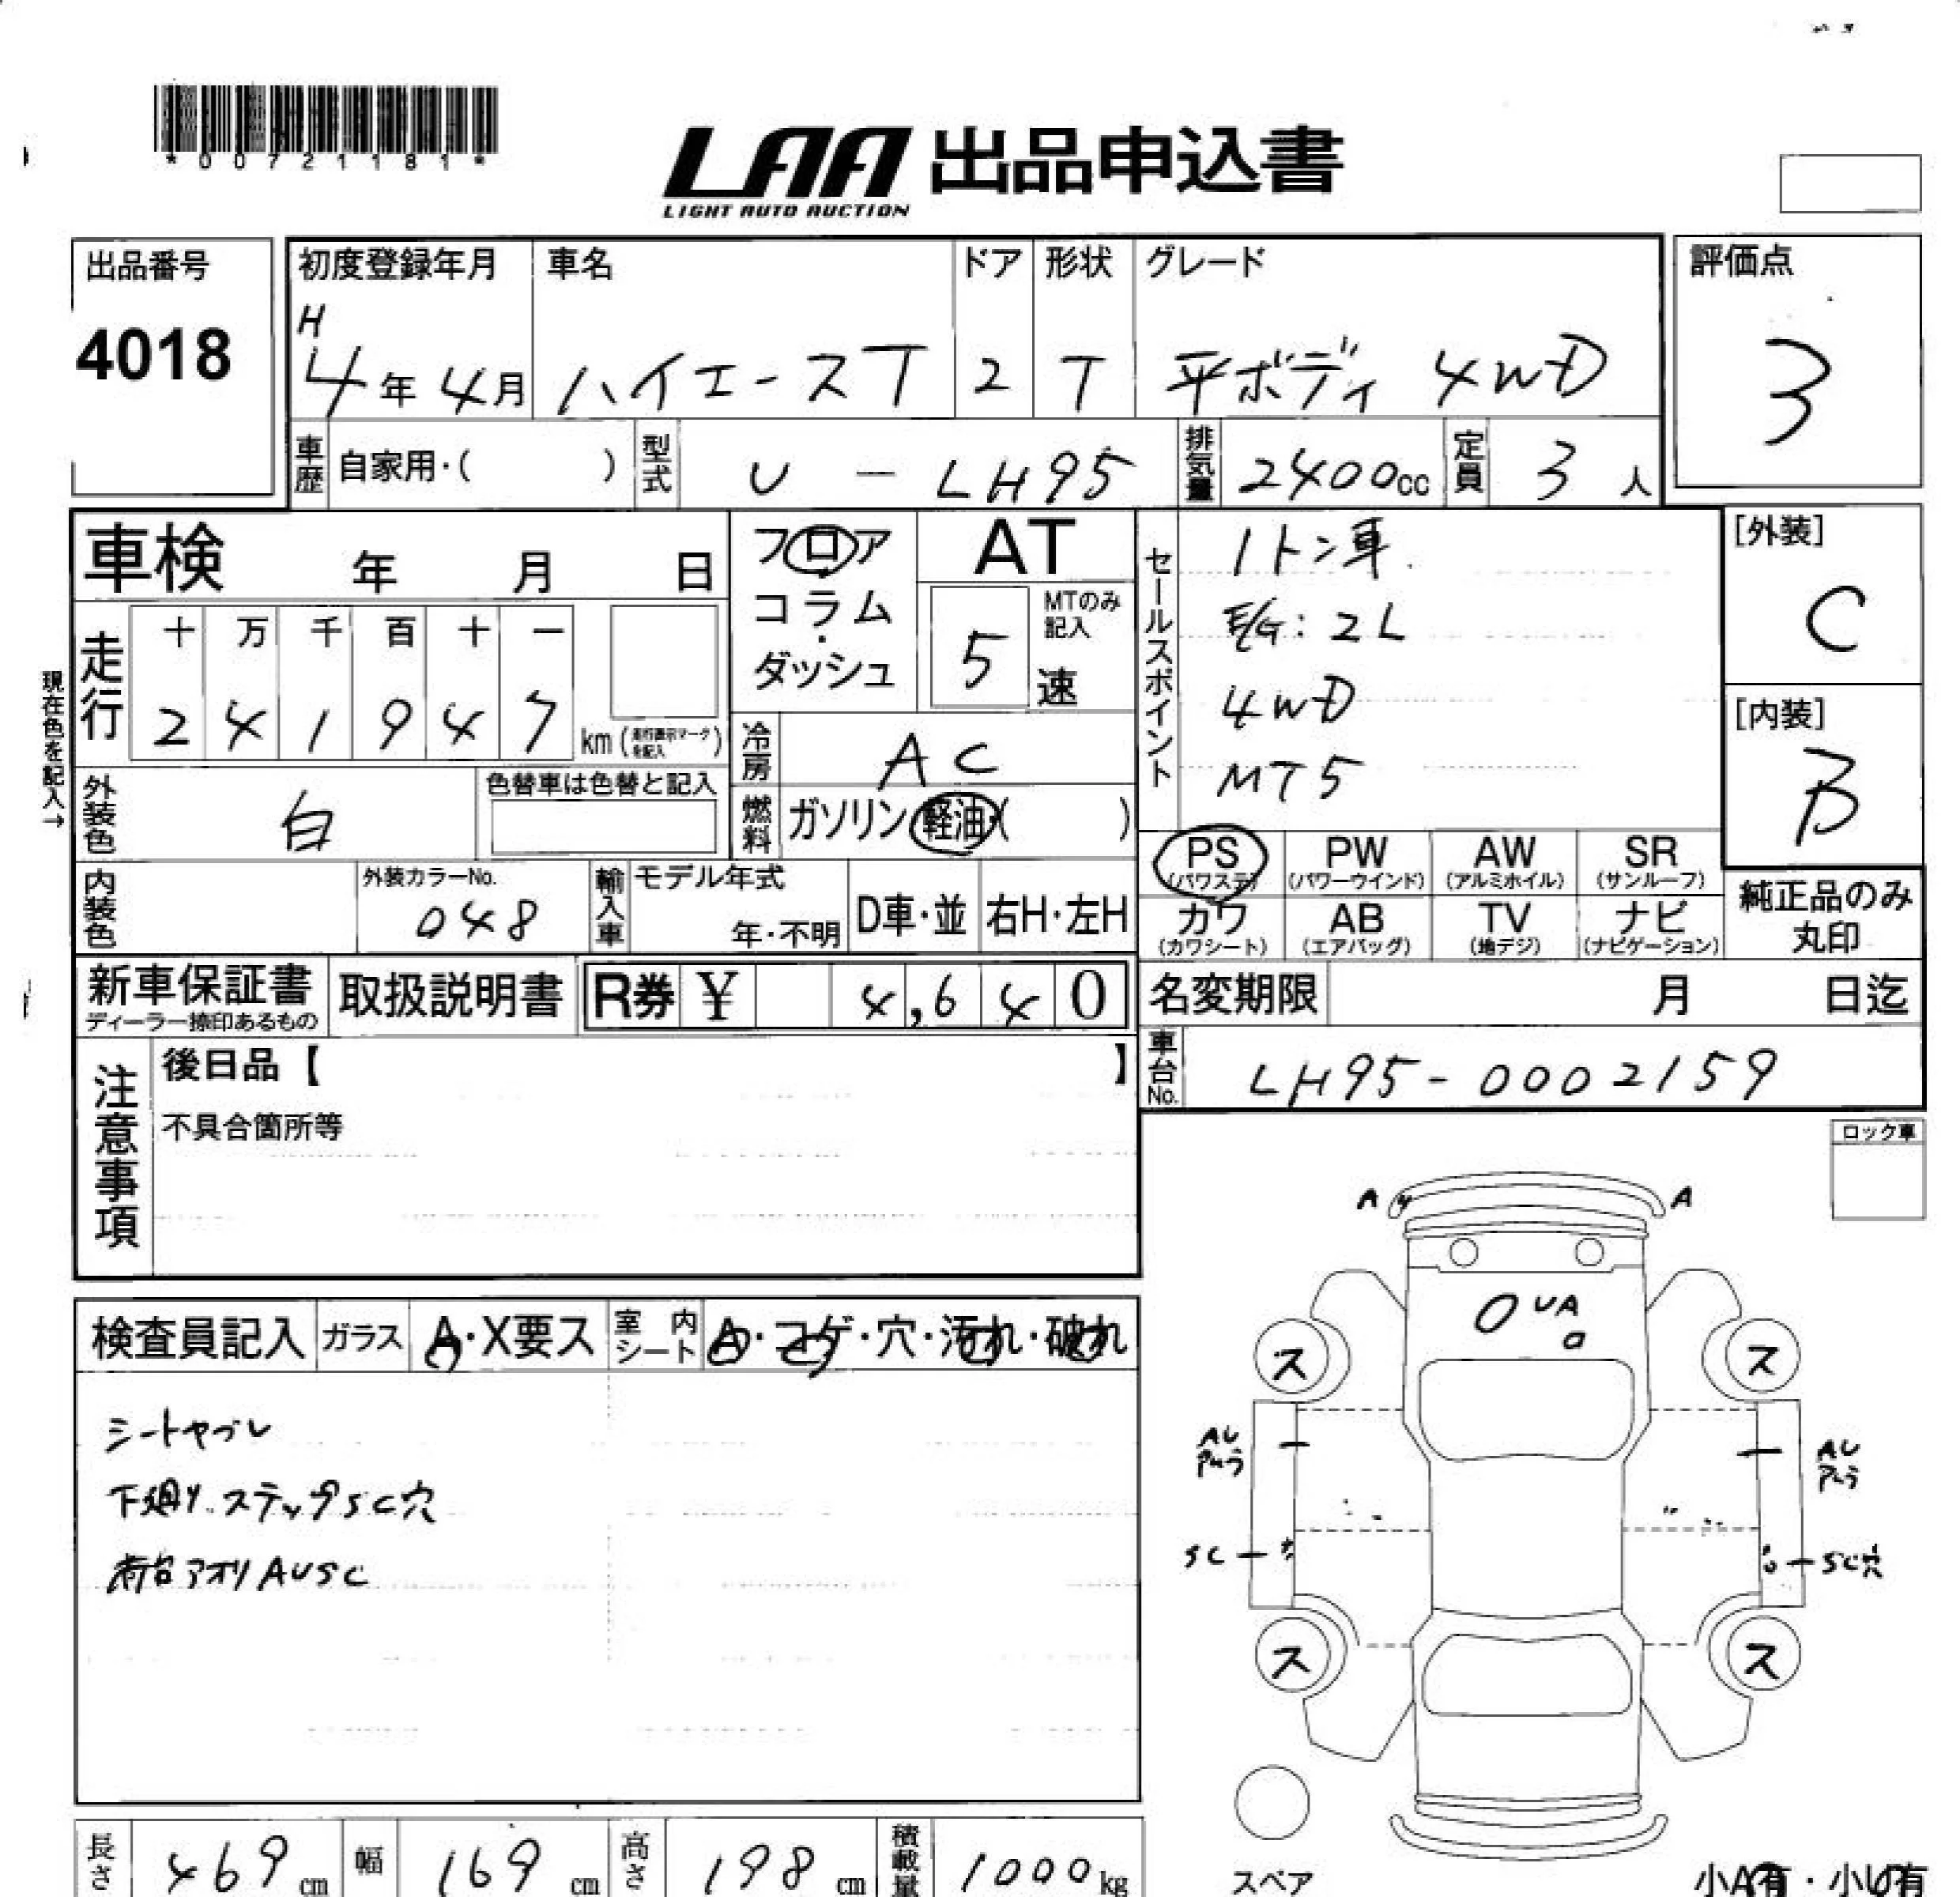 *00721181*
LAA 出品申込書
LIGHT AUTO AUCTION
出品番号
4018
初度登録年月
H
4年4月
車名
ハイエースT
ドア
2
形状
T
グレード
平ボディ 4WD
評価点
3
車歴 自家用・( )
型式 U - LH95
排気量 2400cc
定員 3人
車検 年 月 日
フロア・コラム・ダッシュ
AT
MTのみ記入
5速
セールスポイント
1トン車.
E/G: 2L
4WD
MT5
[外装]
C
[内装]
B
現在色を記入→
走行
十 万 千 百 十 一
2 4 1 9 4 7 km (走行表示マークを記入)
冷房 AC
燃料 ガソリン・軽油・( )
外装色 白
色替車は色替と記入
内装色
外装カラーNo.
048
輸入車 モデル年式
年・不明
D車・並 右H・左H
PS (パワステ)
PW (パワーウインド)
AW (アルミホイル)
SR (サンルーフ)
カワ (カワシート)
AB (エアバッグ)
TV (地デジ)
ナビ (ナビゲーション)
純正品のみ丸印
新車保証書
ディーラー捺印あるもの
取扱説明書
R券 ¥ 4,640
名変期限 月 日迄
車台No. LH95-0002159
注意事項
後日品【 】
不具合箇所等
ロック車
検査員記入 ガラス A・X要ス 室内シート A・コゲ・穴・汚れ・破れ
シートヤブレ
下廻り.ステップSC穴
荷台アオリAUSC
A A
UA
ス ス
AU
AU
SC SC穴
ス ス
スペア
小A有・小U有
長さ 469cm
幅 169cm
高さ 198cm
積載量 1000kg